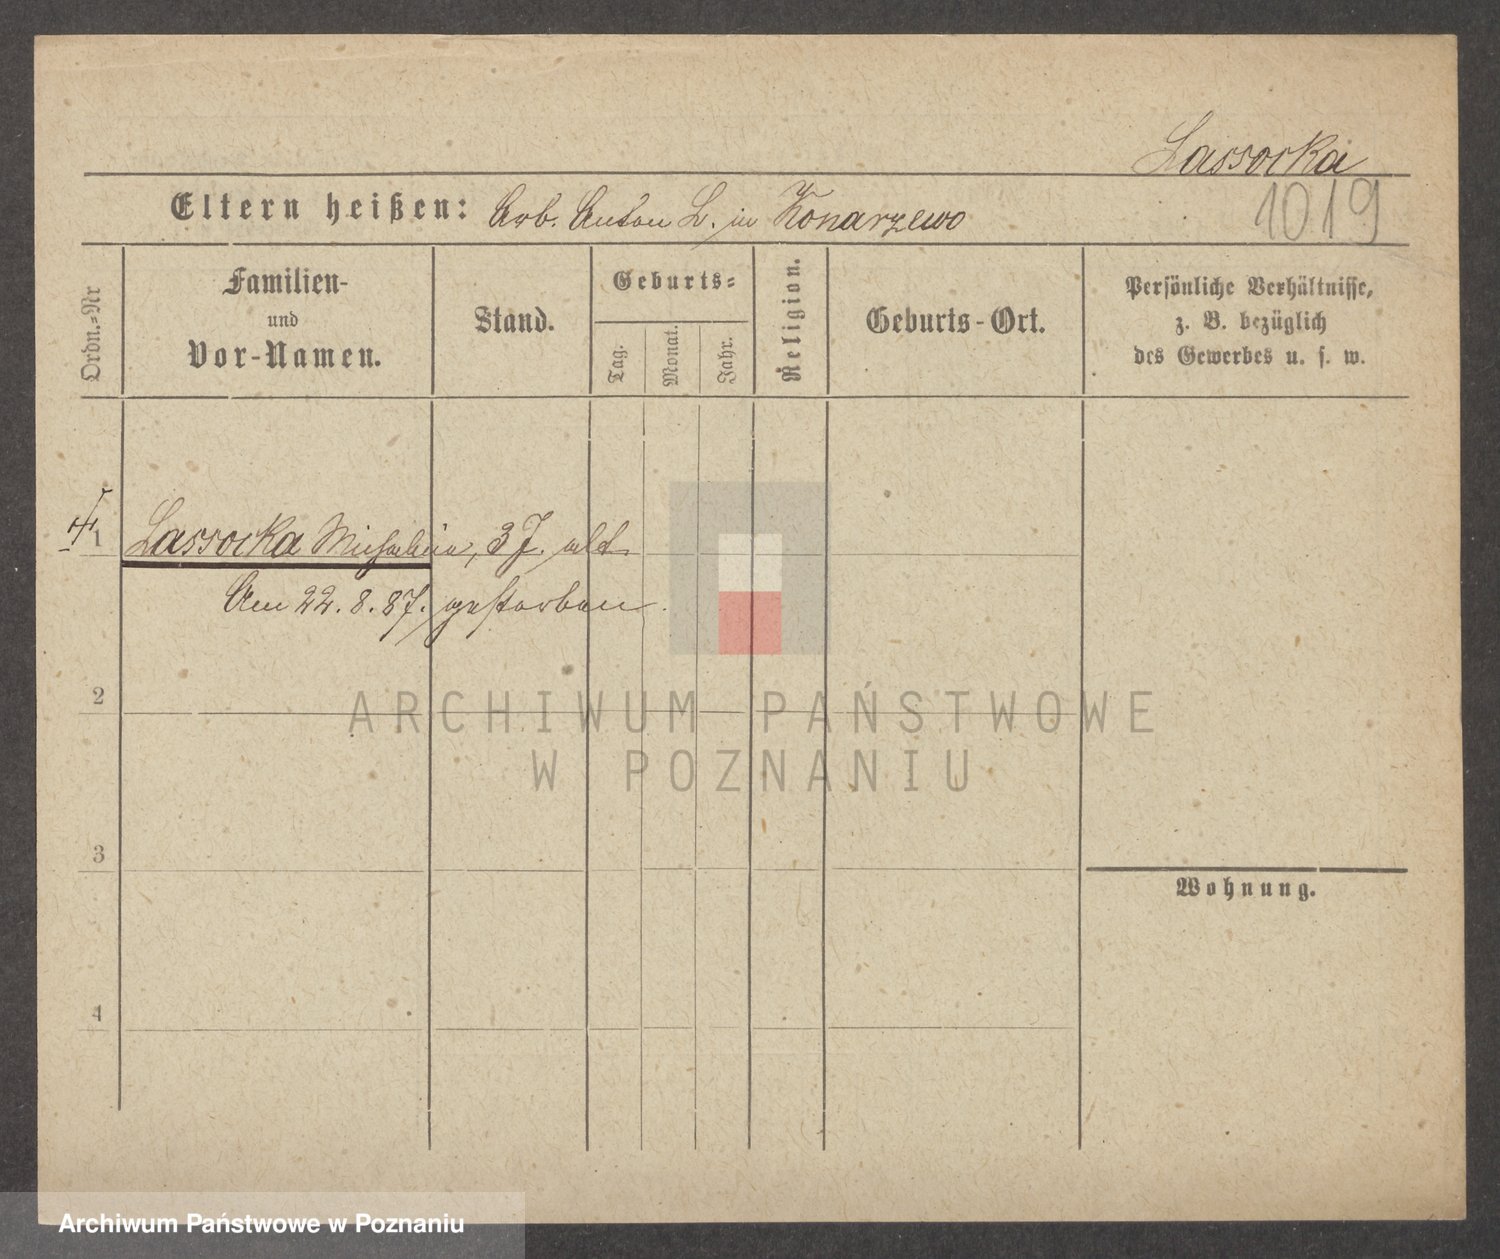 Lassocka
Eltern heißen: Arb. Anton L. in Konarzewo
1019
Ordn.=Nr
Familien-
und
Vor-Namen.
Stand.
Geburts=
Tag.
Monat.
Jahr.
Religion.
Geburts-Ort.
Persönliche Verhältnisse,
z. B. bezüglich
des Gewerbes u. s. w.
1 Lassocka Michalina, 3 J. alt
Am 22. 8. 87. gestorben.
2
ARCHIWUM PAŃSTWOWE
W POZNANIU
3
Wohnung.
4
Archiwum Państwowe w Poznaniu